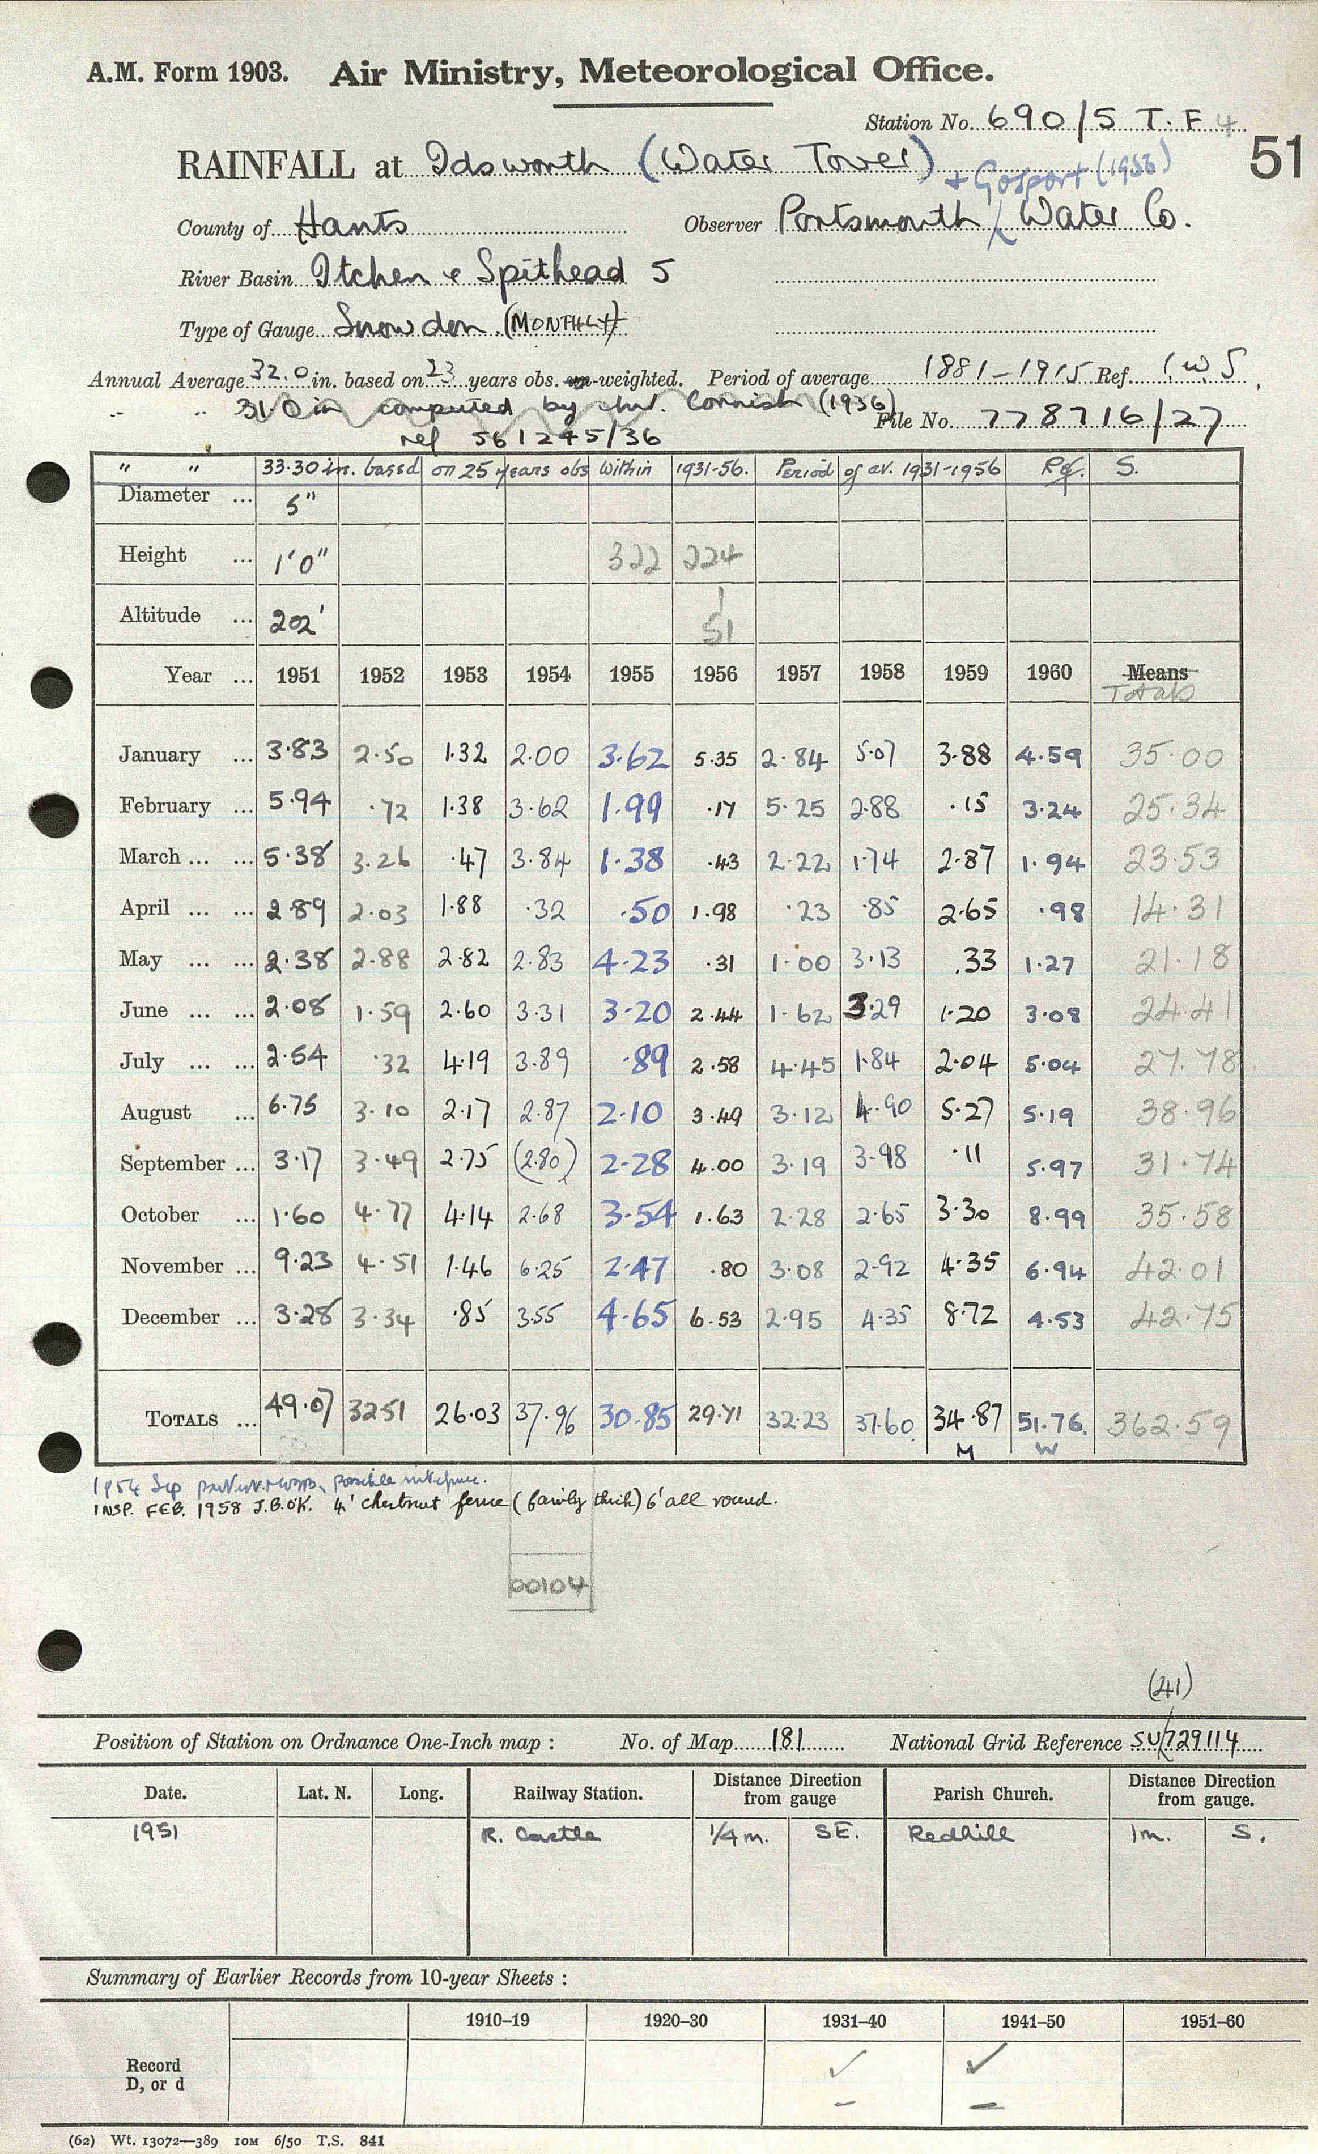 A.M. Form 1903. Air Ministry, Meteorological Office.
Station No. 690/5 T.F 4
RAINFALL at Idsworth (Water Tower) 51
+ Gosport (1956)
County of Hants Observer Portsmouth Water Co.
River Basin Itchen & Spithead 5
Type of Gauge Snowdon (MONTHLY)
Annual Average 32.0 in. based on 23 years obs. un-weighted. Period of average 1881-1915 Ref. I W S.
" " 31.0 in computed by Cornish (1936) File No. 778716/27
ref 561245/36
" " 33.30 ins. based on 25 years obs within 1931-56. Period of av. 1931-1956 Ref. S.
Diameter ... 5"
Height ... 1'0" 322 224
Altitude ... 202' 1
51
Year ... 1951 1952 1953 1954 1955 1956 1957 1958 1959 1960 Means
Totals
January ... 3.83 2.50 1.32 2.00 3.62 5.35 2.84 5.07 3.88 4.59 35.00
February ... 5.94 .72 1.38 3.62 1.99 .17 5.25 2.88 .15 3.24 25.34
March ... ... 5.38 3.26 .47 3.84 1.38 .43 2.22 1.74 2.87 1.94 23.53
April ... ... 2.89 2.03 1.88 .32 .50 1.98 .23 .85 2.65 .98 14.31
May ... ... 2.38 2.88 2.82 2.83 4.23 .31 1.00 3.13 .33 1.27 21.18
June ... ... 2.08 1.59 2.60 3.31 3.20 2.44 1.62 3.29 1.20 3.08 24.41
July ... ... 2.54 .32 4.19 3.89 .89 2.58 4.45 1.84 2.04 5.04 27.78
August ... 6.75 3.10 2.17 2.87 2.10 3.49 3.12 4.90 5.27 5.19 38.96
September ... 3.17 3.49 2.75 (2.80) 2.28 4.00 3.19 3.98 .11 5.97 31.74
October ... 1.60 4.77 4.14 2.68 3.54 1.63 2.28 2.65 3.30 8.99 35.58
November ... 9.23 4.51 1.46 6.25 2.47 .80 3.08 2.92 4.35 6.94 42.01
December ... 3.28 3.34 .85 3.55 4.65 6.53 2.95 4.35 8.72 4.53 42.75
TOTALS ... 49.07 32.51 26.03 37.96 30.85 29.71 32.23 37.60 34.87 51.76 362.59
M W
1954 Sep possible
INSP. FEB. 1958 J.B. OK. 4' chestnut fence (fairly thick) 6' all round.
00104
(41)
Position of Station on Ordnance One-Inch map : No. of Map 181 National Grid Reference SU/729114
Date. Lat. N. Long. Railway Station. Distance Direction from gauge Parish Church. Distance Direction from gauge.
1951 R. Castle 1/4 m. SE. Redhill 1m. S.
Summary of Earlier Records from 10-year Sheets :
1910–19 1920–30 1931–40 1941–50 1951–60
Record ✓ ✓
D, or d – –
(62) Wt. 13072—389 10M 6/50 T.S. 841